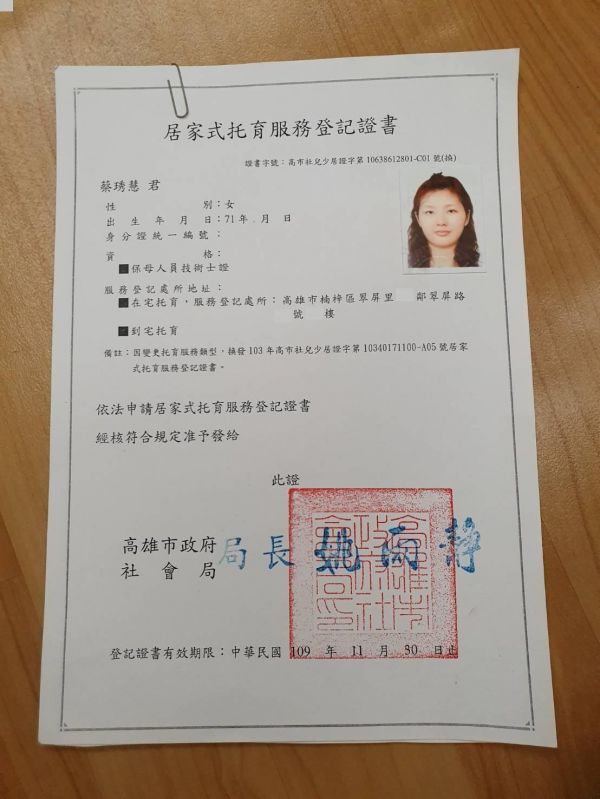 居家式托育服務登記證書
證書字號：高市社兒少居證字第10638612801-C01號(換)
蔡琇慧 君
性別：女
出生年月日：71年 月 日
身分證統一編號：
資格：
■保母人員技術士證
服務登記處所地址：
■在宅托育，服務登記處所：高雄市楠梓區翠屏里 鄰翠屏路
號 樓
■到宅托育
備註：因變更托育服務類型，換發103年高市社兒少居證字第10340171100-A05號居家
式托育服務登記證書。
依法申請居家式托育服務登記證書
經核符合規定准予發給
此證
高雄市政府
社會局
局長 姚雨靜
高雄市政府社會局印
登記證書有效期限：中華民國 109 年 11 月 30 日止